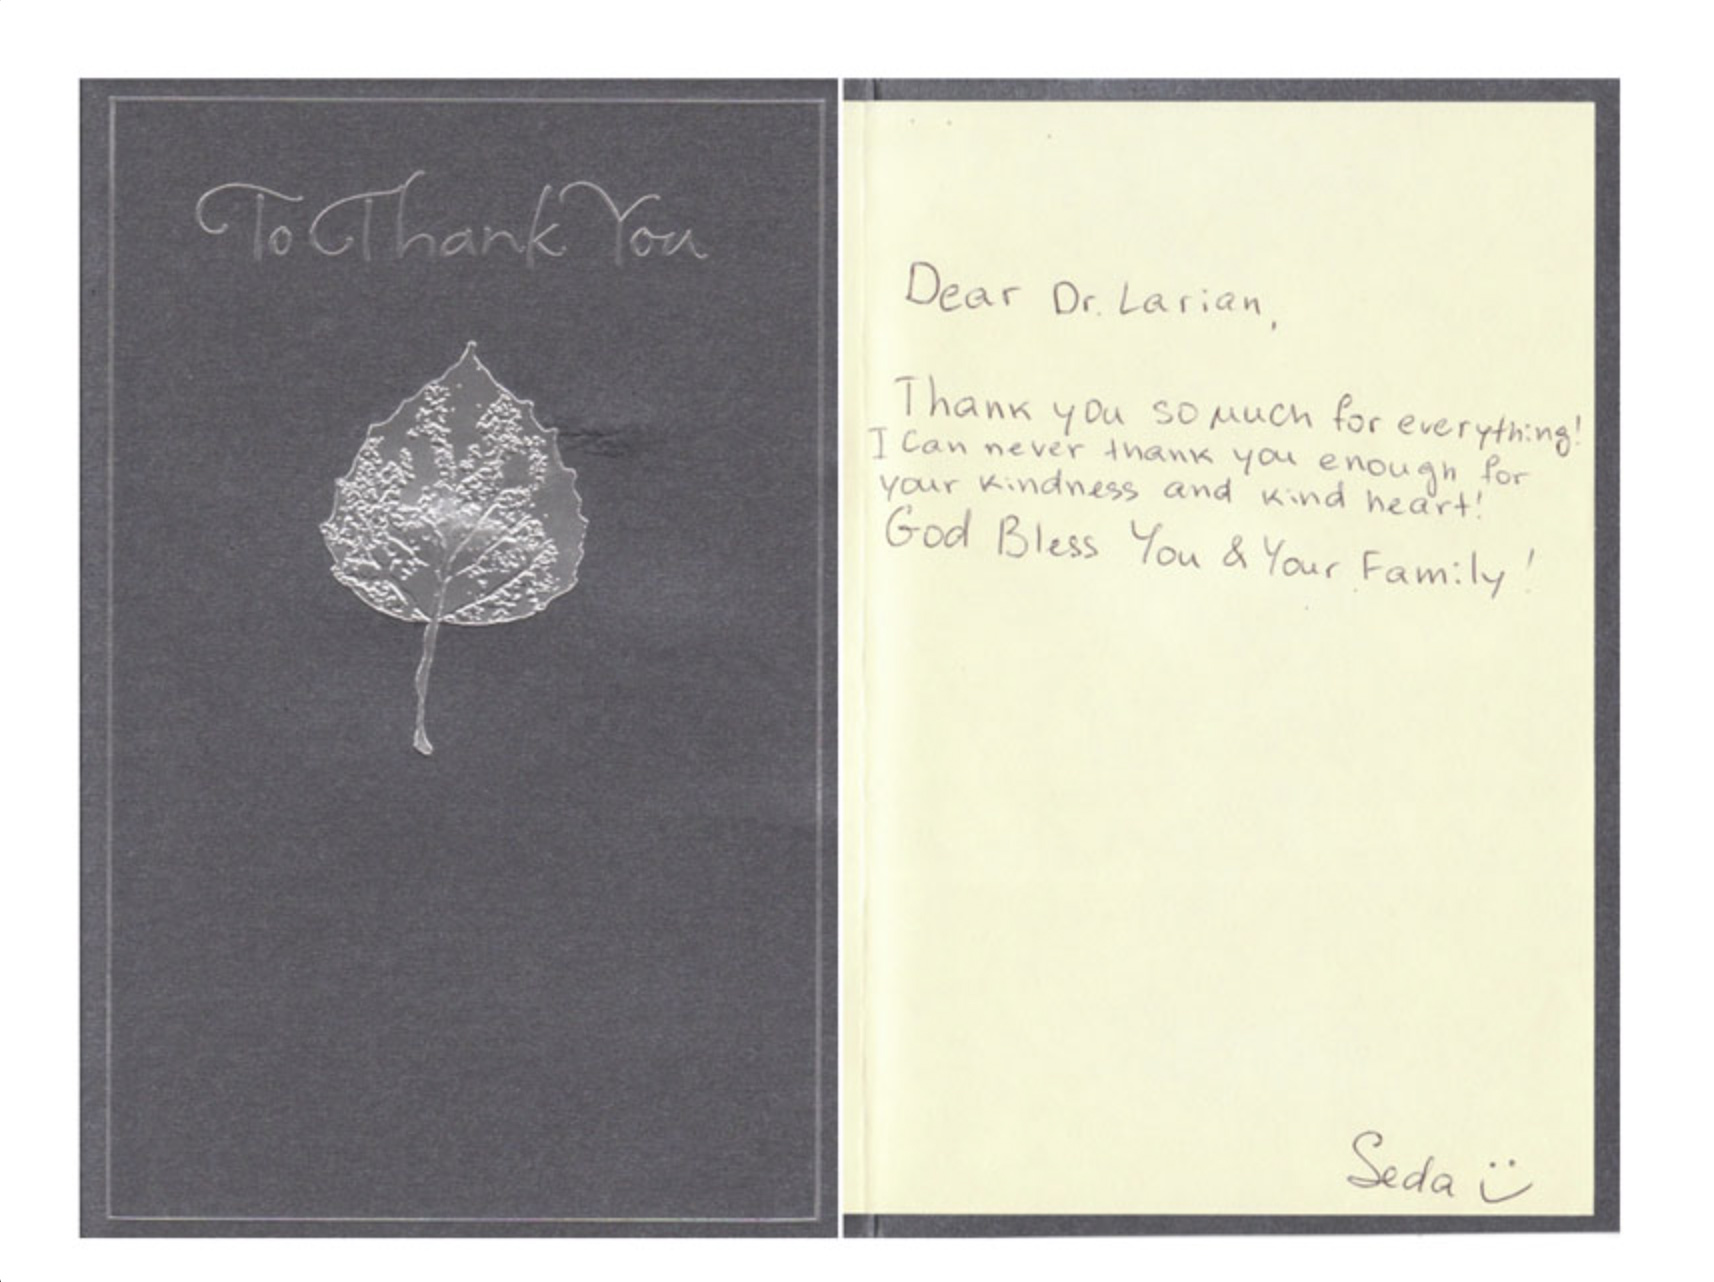 To Thank You
Dear Dr. Larian,
Thank you so much for everything!
I Can never thank you enough for
your kindness and kind heart!
God Bless You & Your Family!
Seda